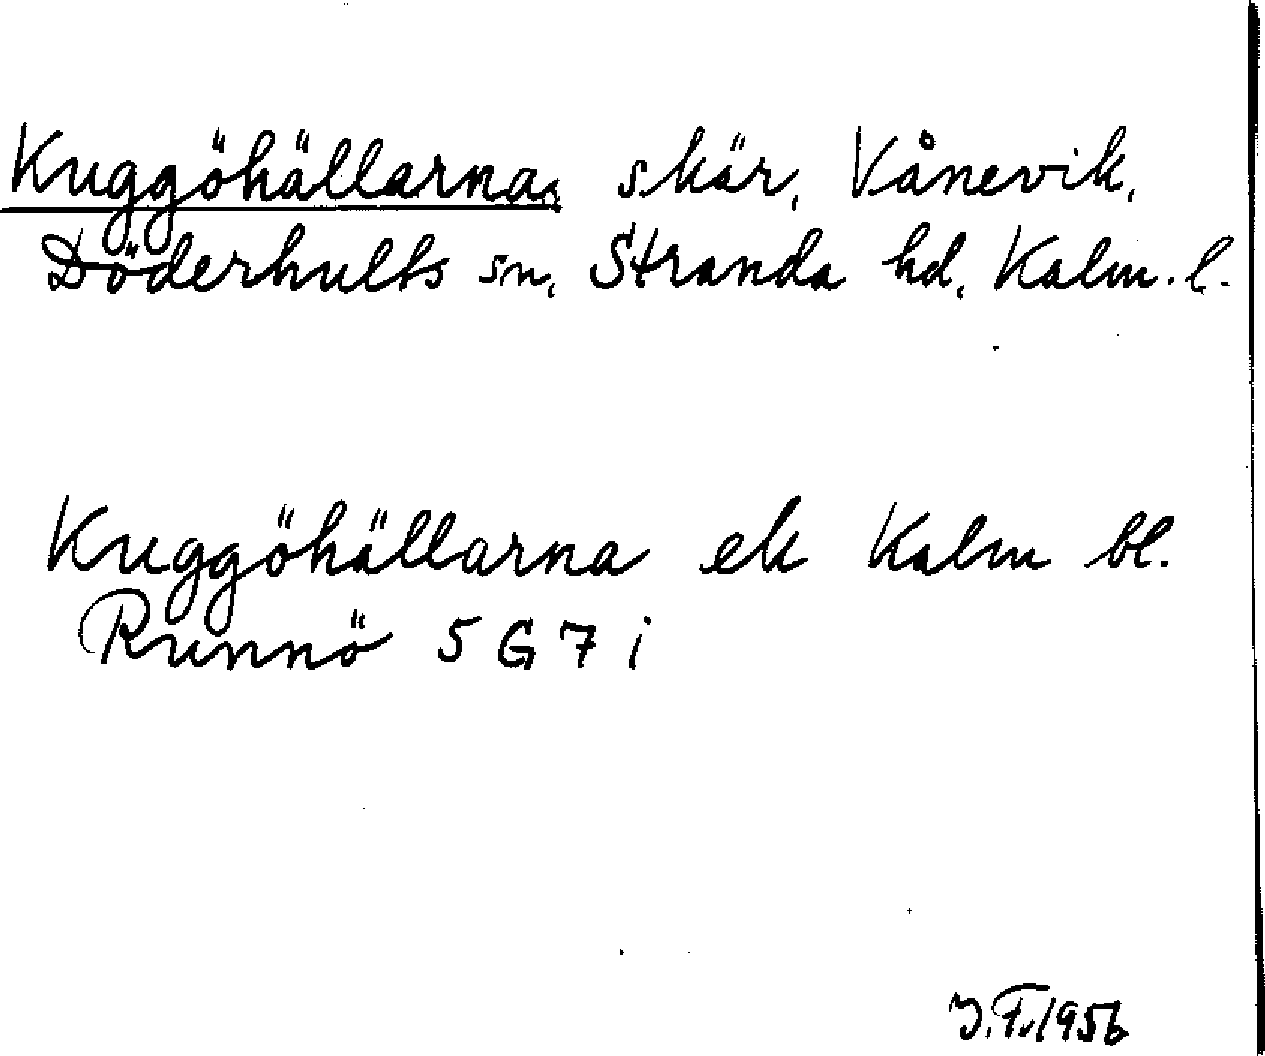 Kuggöhällarna, skär, Vånevik,
Döderhults sn, Stranda hd, Kalm. l.
Kuggöhällarna ek Kalm bl.
Runnö 5 G 7 i
J.F. 1956